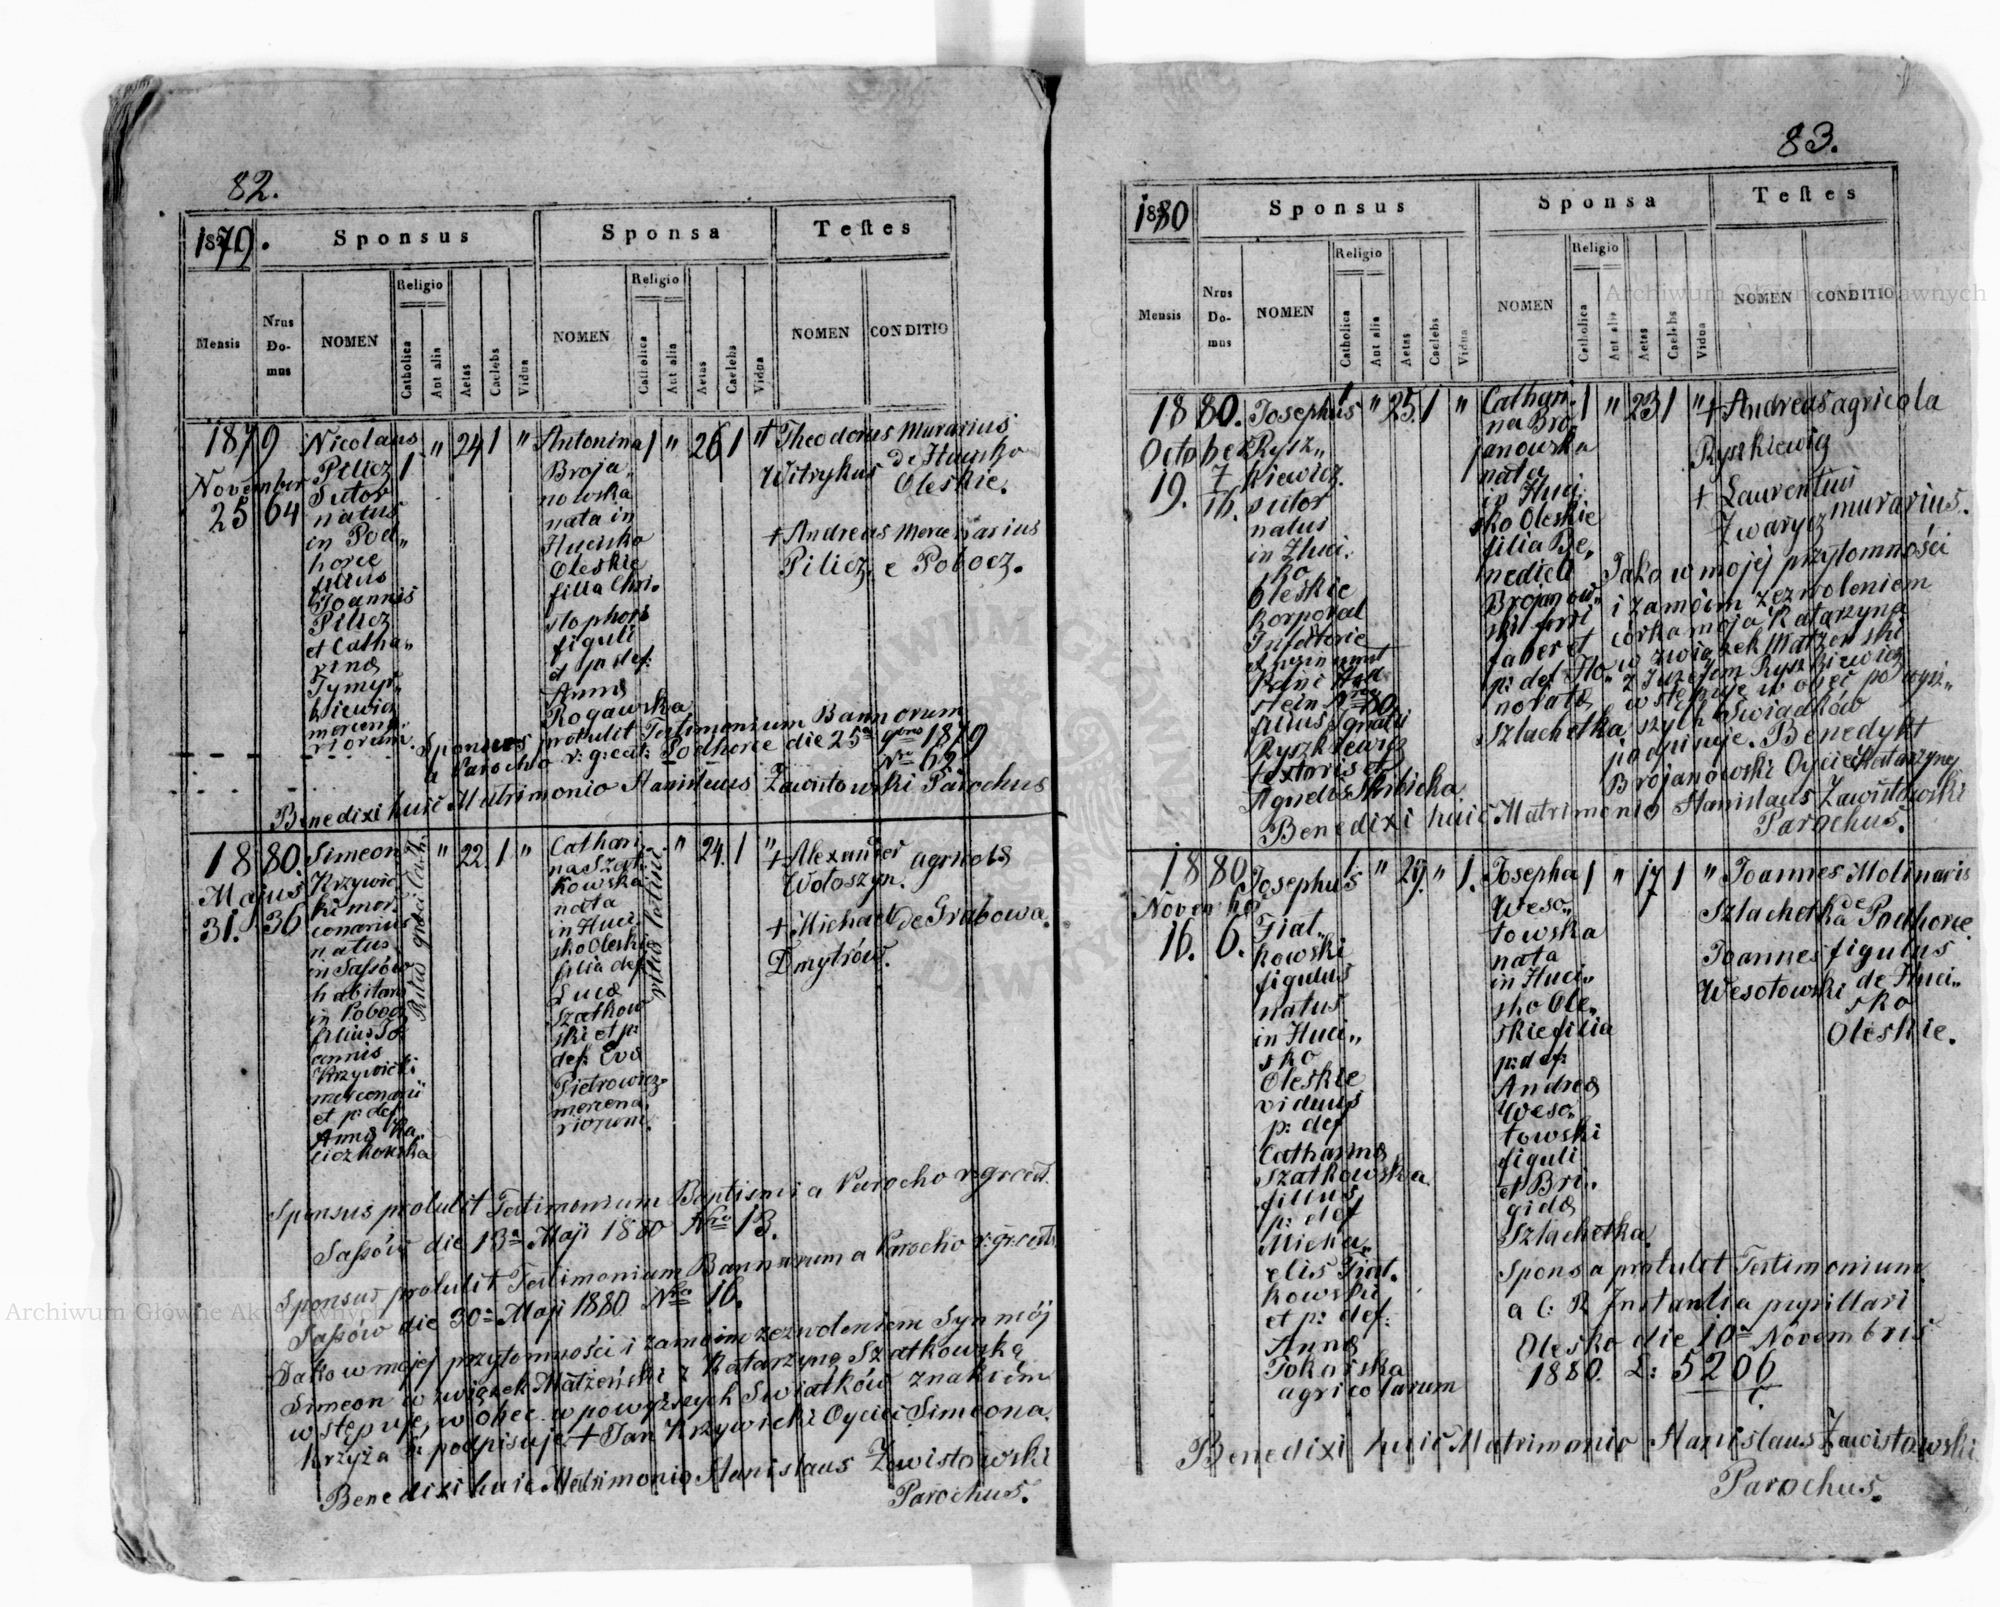 82.
1879.
Sponsus
Sponsa
Testes
Mensis
Nrus Domus
NOMEN
Religio
Catholica
Aut alia
Aetas
Caelebs
Vidua
NOMEN
Religio
Catholica
Aut alia
Aetas
Caelebs
Vidua
NOMEN
CONDITIO
1879
November
25
64
Nicolaus
Pilicz
Sutor
natus
in Pod„
horce
filius
Joannis
Pilicz
et Catha„
rina
Tymyś„
kiewicz
mercena„
riorum.
1 " 24 1 "
Antonina
Broja„
nowska
nata in
Hucisko
Oleskie
filia Chri„
stophori
figuli
et p: def:
Anna
Rogawska
1 " 26 1 "
+ Theodorus murarius
Witrykus de Hucisko
Oleskie.
+ Andreas mercenarius
Pilicz e Pobocz.
Sponsus protulit Testimonium Bannorum
a Parocho r: gr: cat: Podhorce die 25ª 9bris 1879
Nro 62
Benedixi huic Matrimonio Stanislaus Zawistowski Parochus
1880.
Majus
31.
36
Simeon
Krzywic„
ki mer„
cenarius
natus
in Sassów
habitans
in Pobocz
filius Jo„
annis
Krzywicki
mercenarii
et p: def
Anna Ka„
czkowska
Ritus graeci Cath.
" 22. 1 "
Cathari„
na Szat„
kowska
nata
in Huci„
sko Oleskie
filia def
Luca
Szatkow„
ski et p:
def: Eva
Pietrowicz
mercena„
riorum.
ritus latini
" 24. 1 "
+ Alexander agricola
Wołoszyn.
+ Michael de Grabowa.
Dmytrów.
Sponsus protulit Testimonium Baptismi a Parocho r: gr: cath.
Sassów die 13ª Maji 1880 Nro 13.
Sponsus protulit Testimonium Bannorum a Parocho r: gr: cath.
Sassów die 30ª Maji 1880 Nro 16.
Jako w mojej przytomności i zamoim zezwoleniem Syn mój
Simeon w związek Małżeński z Katarzyną Szatkowską
wstępuje, wobec w powyższych Swiatków znakiem
Krzyża Sº podpisuje + Jan Krzywicki Oyciec Simeona.
Benedixi huic Matrimonio Stanislaus Zawistowski
Parochus.
83.
1880
Sponsus
Sponsa
Testes
Mensis
Nrus Domus
NOMEN
Religio
Catholica
Aut alia
Aetas
Caelebs
Vidua
NOMEN
Religio
Catholica
Aut alia
Aetas
Caelebs
Vidua
NOMEN
CONDITIO
1880.
October
19.
7
Josephus
Rysz„
kiewicz
sutor
natus
in Huci„
ko
Oleskie
Korporal
Infanterie
filius Ignatii
Ryszkiewicz
textoris et
Agnetis Skibicka
1 " 25. 1 "
Cathari„
na Bro„
janowska
nata
in Huci„
sko Oleskie
filia Be„
nedicti
Brojanow„
ski
faber et
p: def Ho„
norata
Szlachetka
1 " 23 1 "
+ Andreas agricola
Ryszkiewicz
+ Laurentius
Zwarycz murarius.
Jako w mojej przytomności
i zamoim zezwoleniem
córka moja Katarzyna
w związek Małżenski
z Józefem Ryszkiewicz
wstępuje w obec powyż„
szych Swiadków
podpisuje. Benedykt
Brojanowski Oyciec Katarzyny
Benedixi huic Matrimonio Stanislaus Zawistowski
Parochus.
1880
November
16.
6.
Josephus
Fiał„
kowski
figulus
natus
in Huci„
sko
Oleskie
viduus
p: def
Catharina
Szatkowska
filius
p: def
Micha„
elis Fiał„
kowski
et p: def:
Anna
Tokarska
agricolarum
1 " 29. " 1.
Josepha
Weso„
łowska
nata
in Huci„
sko Ole„
skie filia
p: def
Andrea
Weso„
łowski
figuli
et Bri„
gida
Szlachetka
1 " 17 1 "
Joannes Molinaris
Szlachetka de Podhorce
Joannes figulus
Wesołowski de Huci„
sko
Oleskie.
Sponsa protulit Testimonium
a C: R Instantia pupillari
Olesko die 10ª Novembris
1880. L: 5206
Benedixi huic Matrimonio Stanislaus Zawistowski
Parochus.
Archiwum Główne Akt Dawnych
Archiwum Główne Akt Dawnych